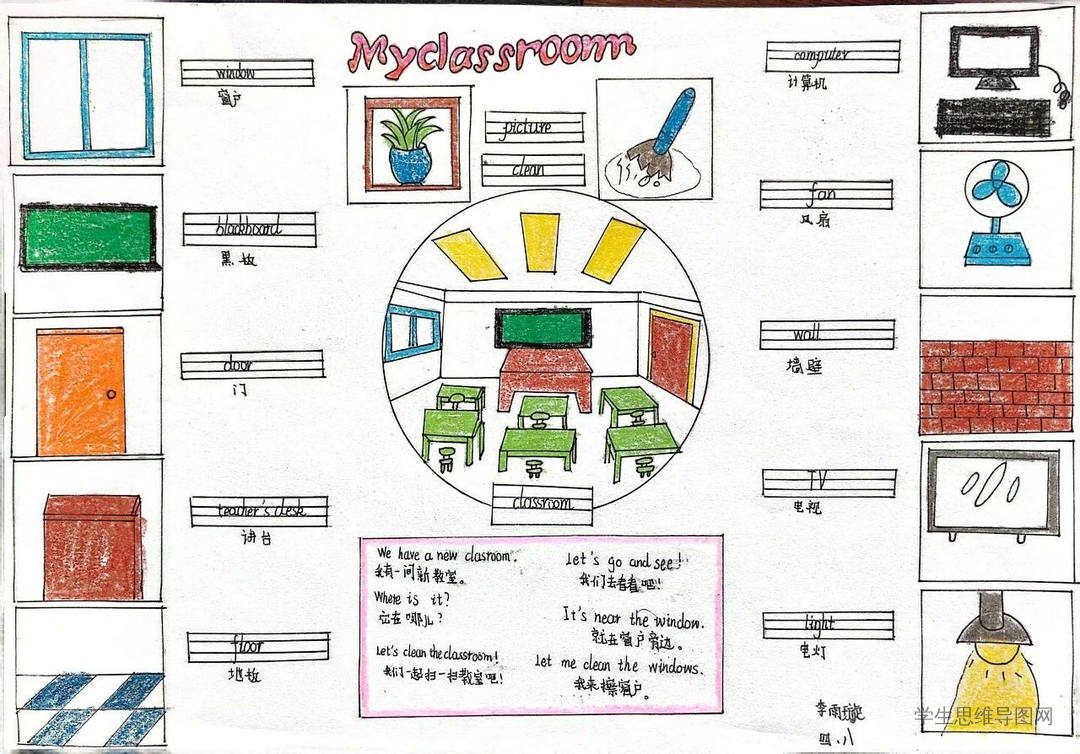 Myclassroom
window
窗户
blackboard
黑板
door
门
teacher's desk
讲台
floor
地板
picture
clean
classroom
computer
计算机
fan
风扇
wall
墙壁
TV
电视
light
电灯
We have a new clasroom.
我有一间新教室。
Where is it?
它在哪儿?
Let's clean the classroom!
我们一起扫一扫教室吧!
Let's go and see!
我们去看看吧!
It's near the window.
就在窗户旁边。
Let me clean the windows.
我来擦窗户。
李雨
四、八
学生思维导图网